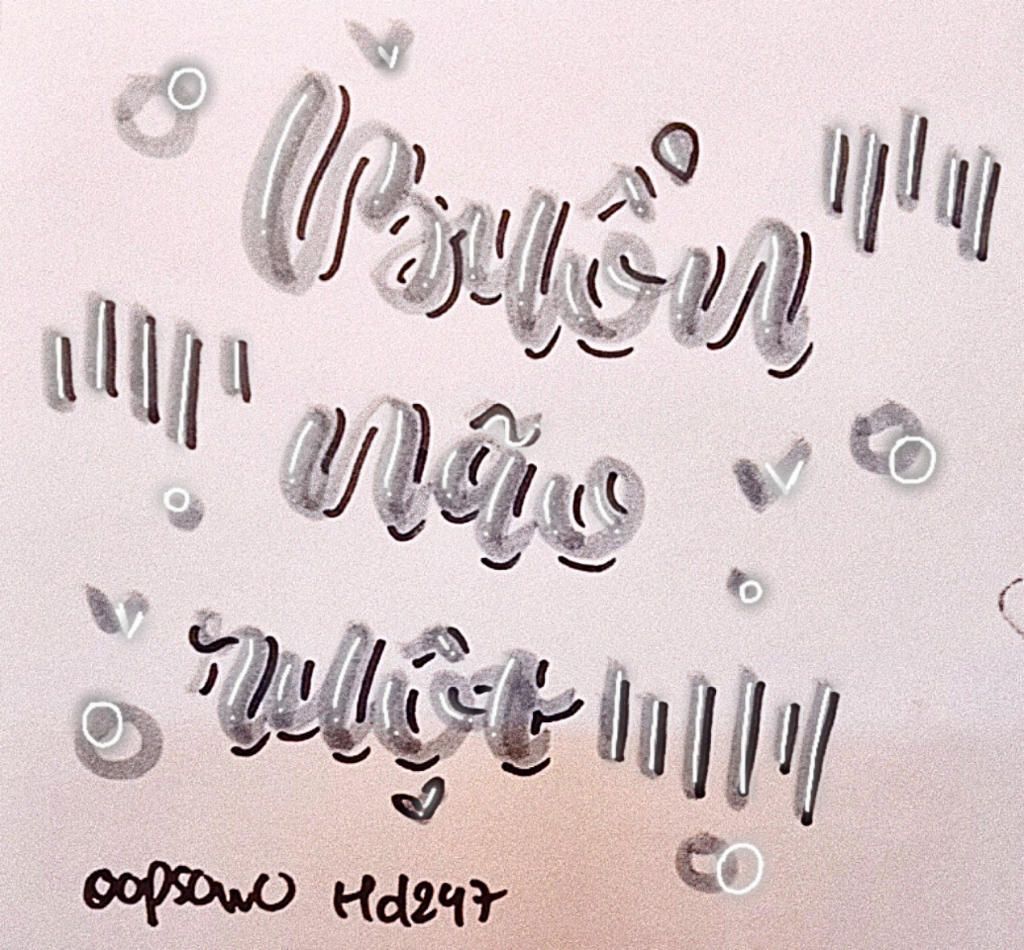 Buồn
não
ruột
oopsowo Hd247